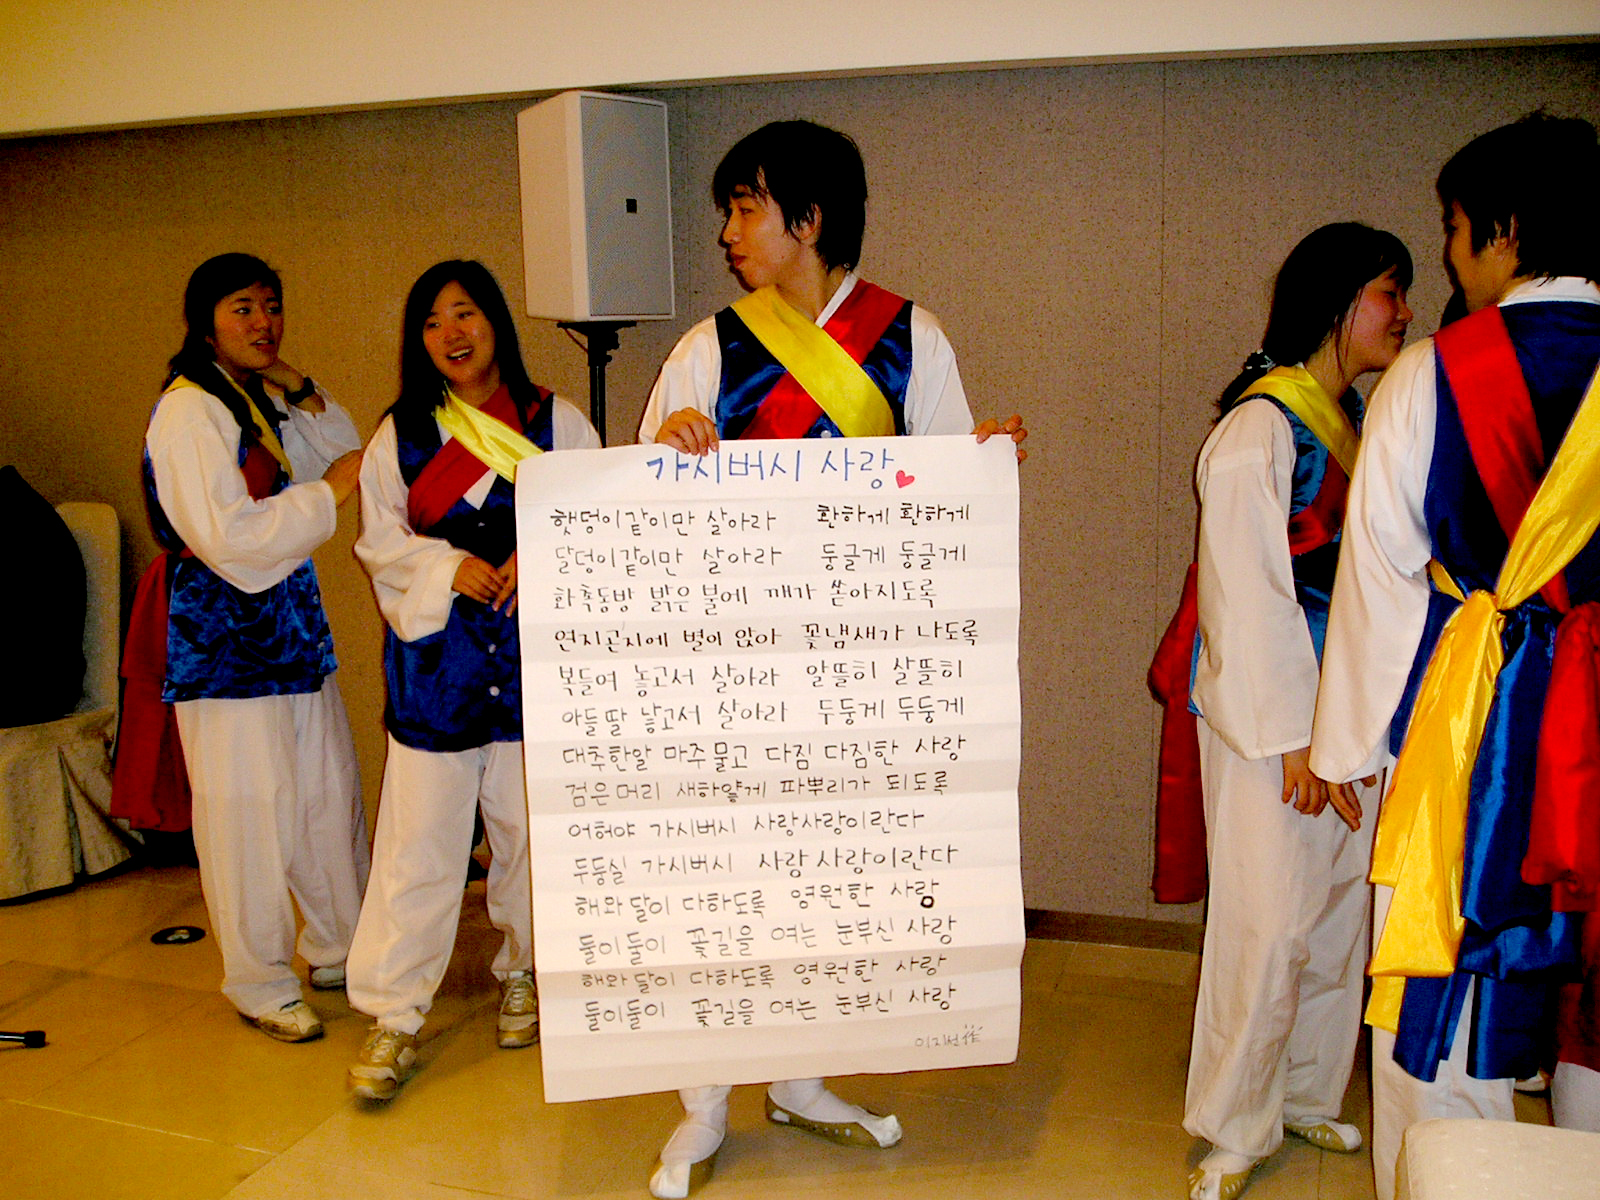 가시버시 사랑
햇덩이같이만 살아라 환하게 환하게
달덩이같이만 살아라 둥글게 둥글게
화촉동방 밝은 불에 깨가 쏟아지도록
연지곤지에 별이 앉아 꽃냄새가 나도록
복들여 놓고서 살아라 알뜰히 살뜰히
아들 딸 낳고서 살아라 두둥게 두둥게
대추한알 마주 물고 다짐 다짐한 사랑
검은머리 새하얗게 파뿌리가 되도록
어허야 가시버시 사랑사랑이란다
두둥실 가시버시 사랑 사랑이란다
해와 달이 다하도록 영원한 사람
둘이둘이 꽃길을 여는 눈부신 사랑
해와 달이 다하도록 영원한 사랑
둘이둘이 꽃길을 여는 눈부신 사랑
이지선 作